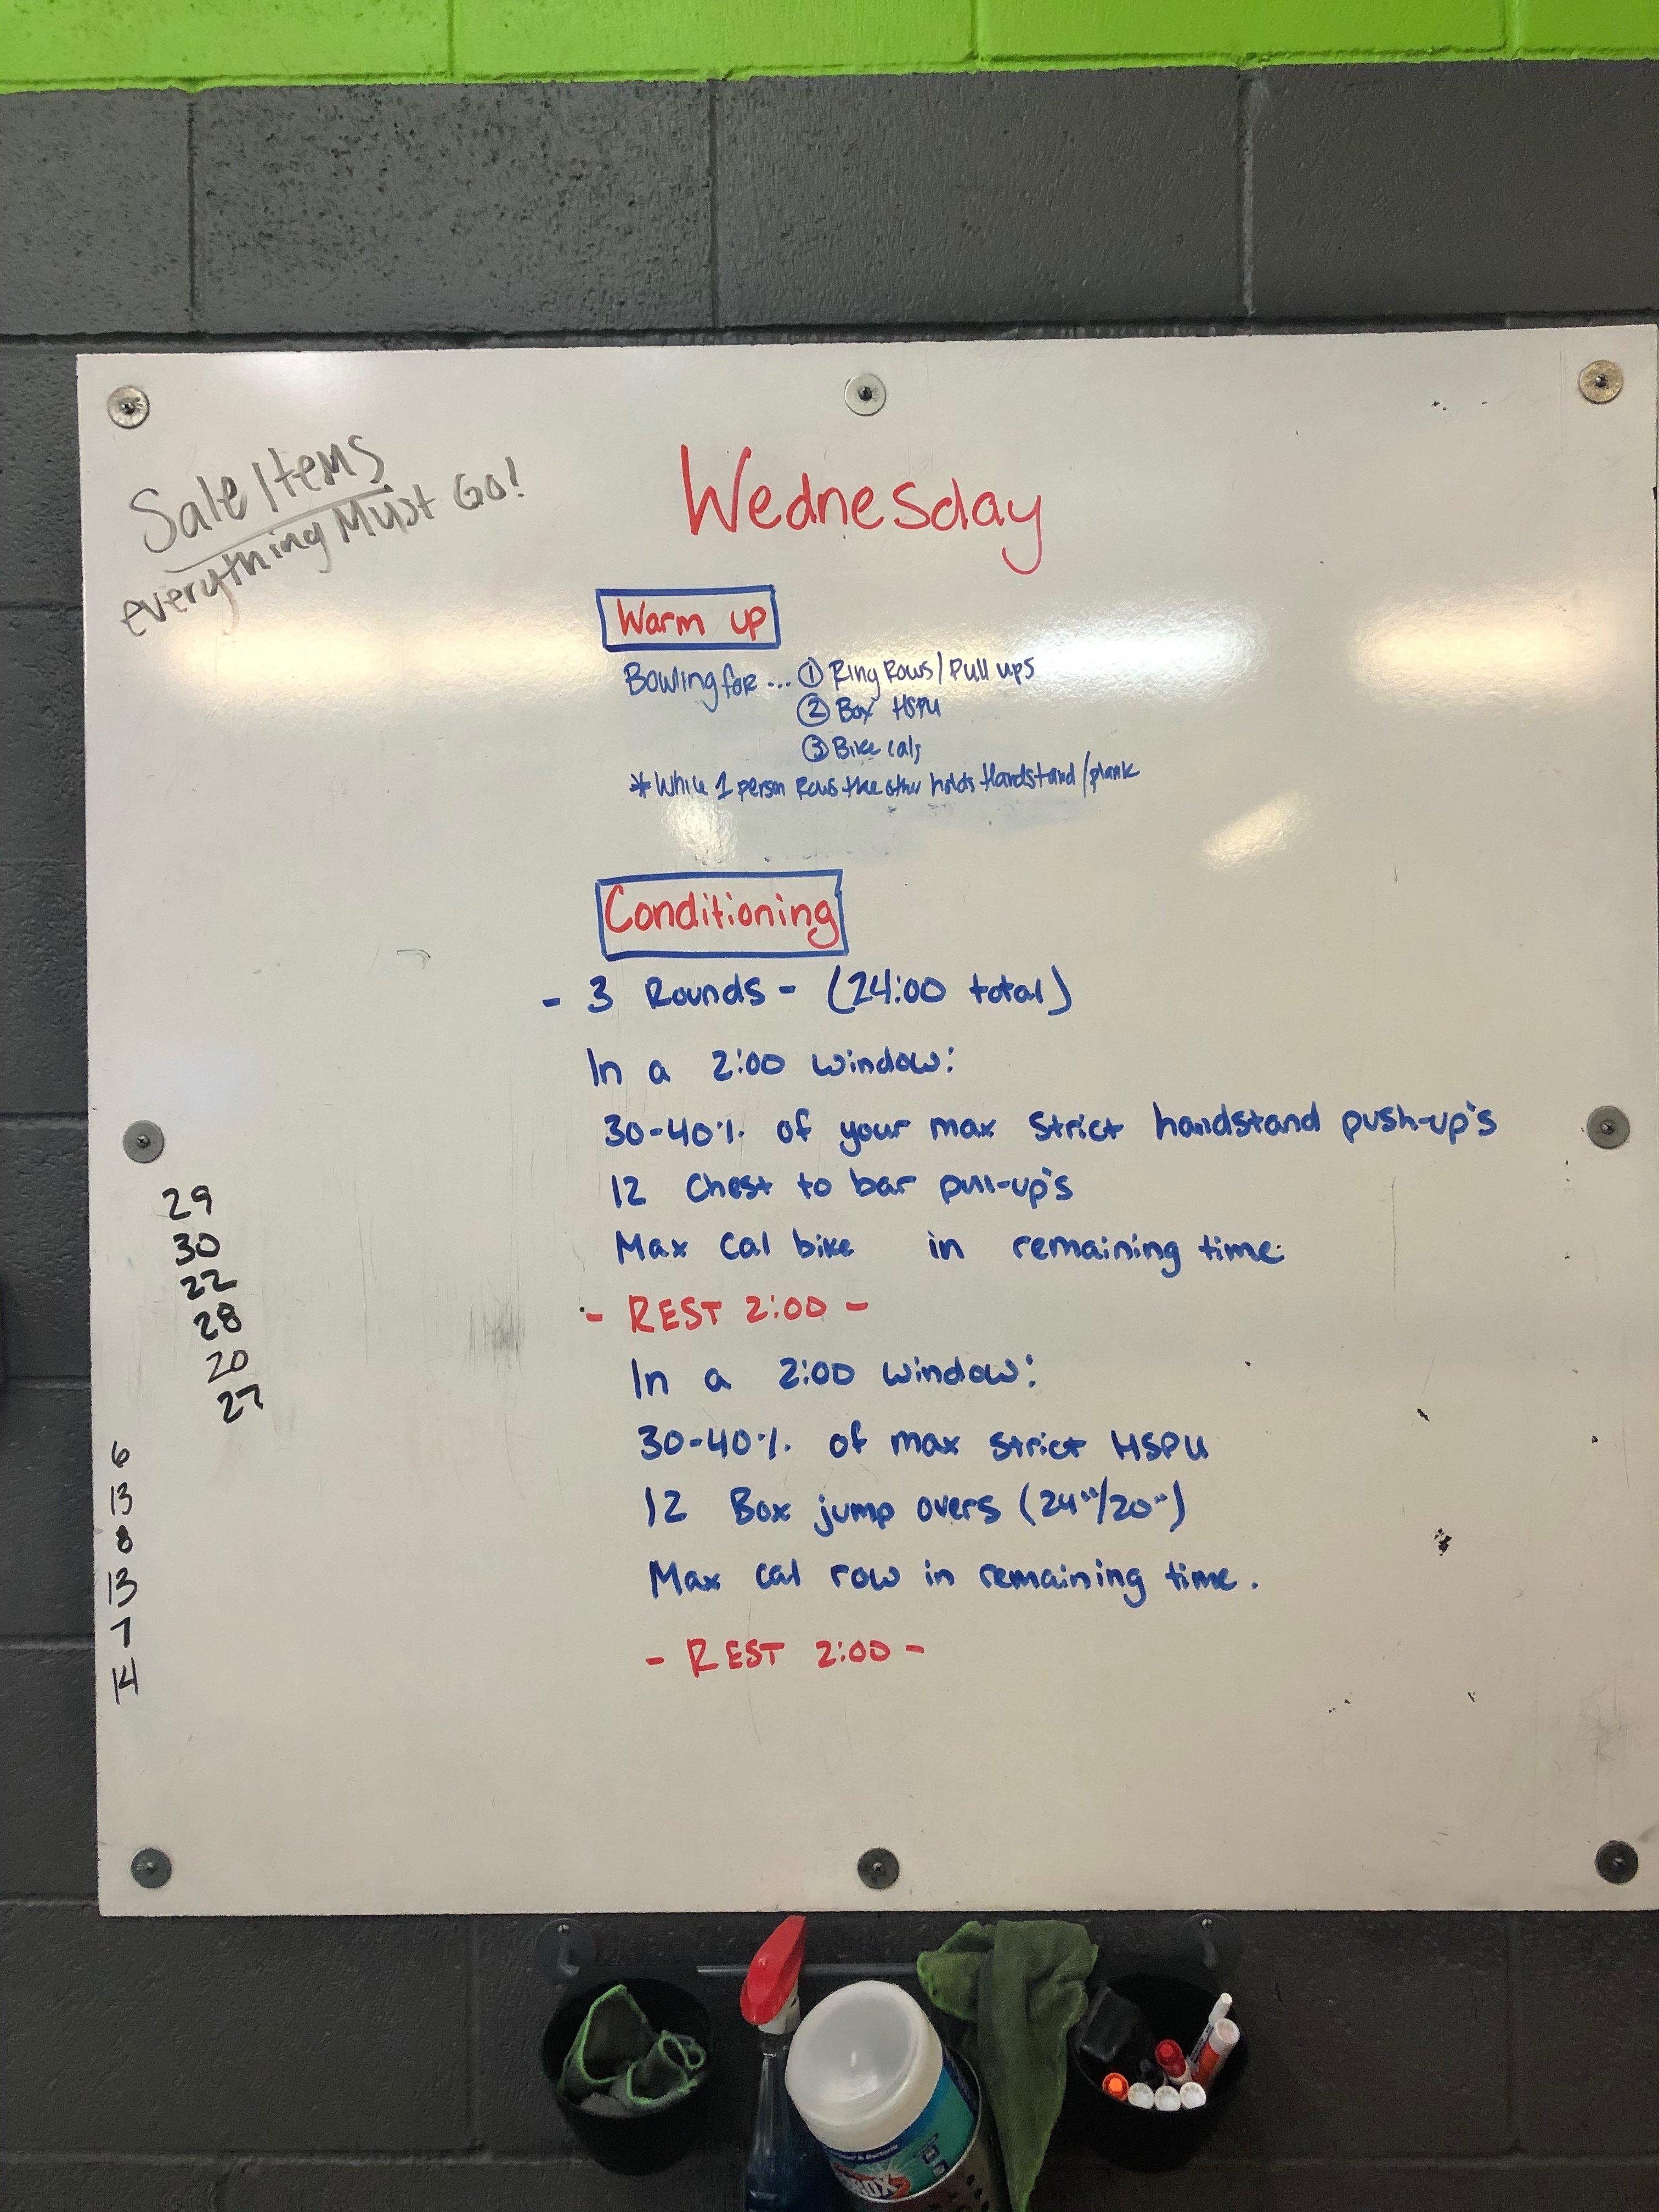 Sale Items
everything Must Go!
Wednesday
Warm up
Bowling for ... ① Ring Rows/Pull ups
② Box HSPU
③ Bike cals
* While 1 person Rows the other holds Handstand/plank
Conditioning
- 3 Rounds - (24:00 total)
In a 2:00 window:
30-40% of your max strict handstand push-up's
12 Chest to bar pull-up's
Max Cal bike in remaining time.
- REST 2:00 -
In a 2:00 window:
30-40% of max strict HSPU
12 Box jump overs (24"/20")
Max cal row in remaining time.
- REST 2:00 -
29
30
22
28
20
27
6
13
8
13
7
14